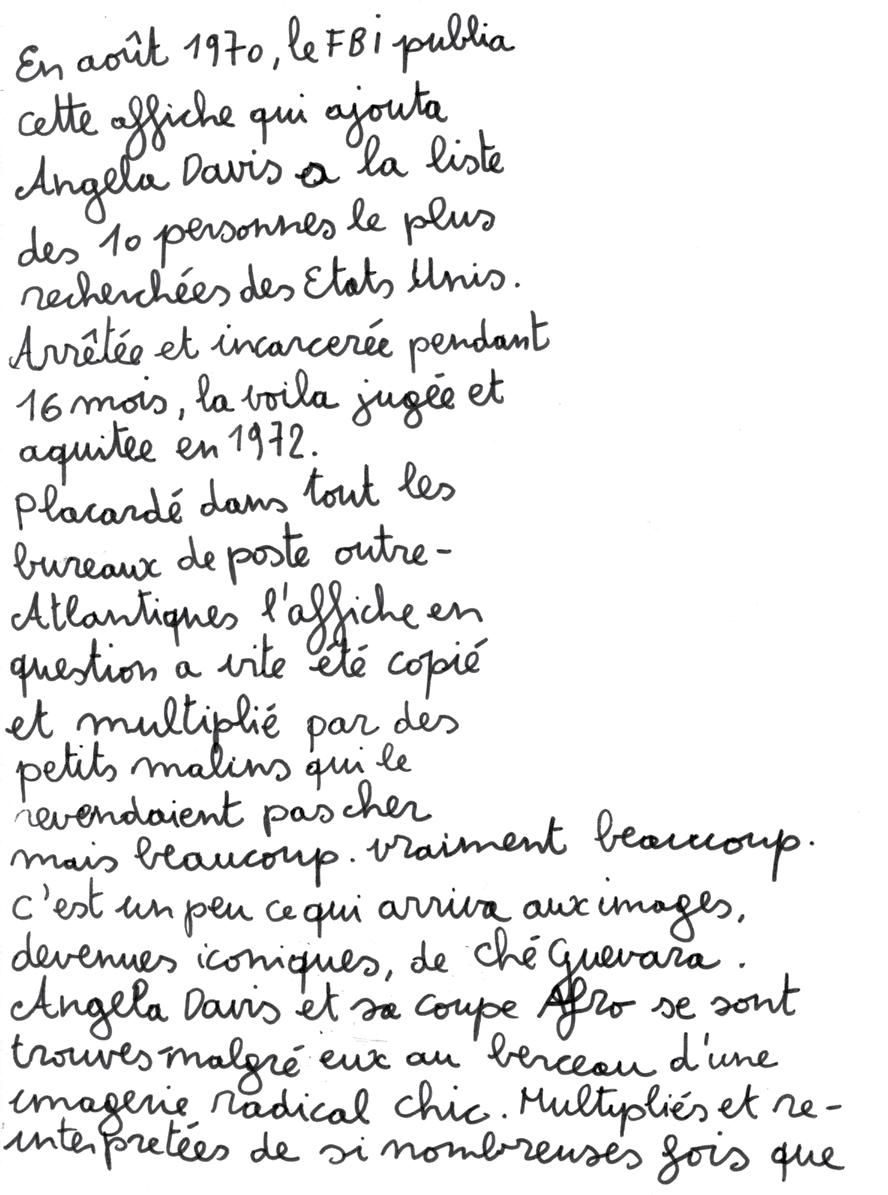 En août 1970, le FBi publia
cette affiche qui ajouta
Angela Davis a la liste
des 10 personnes le plus
recherchées des Etats Unis.
Arrêtée et incarcerée pendant
16 mois, la voila jugée et
aquitee en 1972.
Placardé dans tout les
bureaux de poste outre-
Atlantiques l'affiche en
question a vite été copié
et multiplié par des
petits malins qui le
revendaient pas cher
mais beaucoup. vraiment beaucoup.
c'est un peu ce qui arriva aux images,
devenues iconiques, de ché Guevara.
Angela Davis et sa coupe Afro se sont
trouves malgré eux au berceau d'une
imagerie radical chic. Multipliés et re-
interpretées de si nombreuses fois que